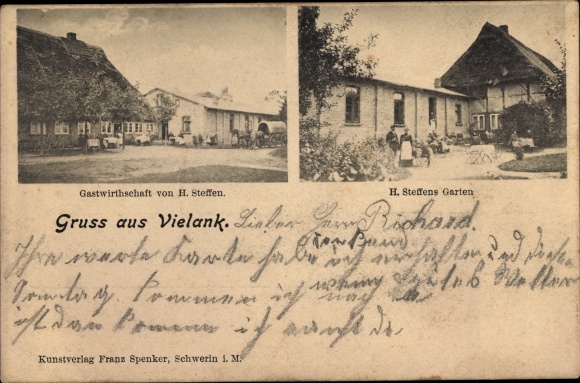 Gastwirthschaft von H. Steffen.
H. Steffens Garten
Gruss aus Vielank. Lieber Herr Richard.
Ihre werte Karte habe ich erhalten und
Sontag kommen ich nach wen gutes Wetter
ist dan komme ich
Kunstverlag Franz Spenker, Schwerin i. M.